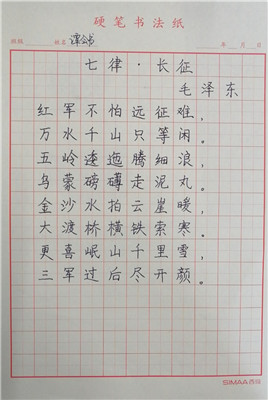 硬笔书法纸
班级 姓名 谭公书 年 月 日
七律·长征
毛泽东
红军不怕远征难，
万水千山只等闲。
五岭逶迤腾细浪，
乌蒙磅礴走泥丸。
金沙水拍云崖暖，
大渡桥横铁索寒。
更喜岷山千里雪，
三军过后尽开颜。
SIMAA